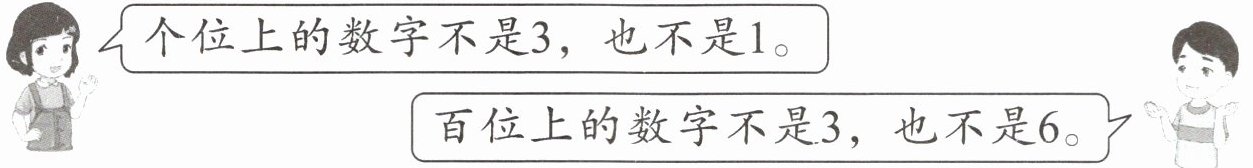 个位上的数字不是3，也不是1。
百位上的数字不是3，也不是6。